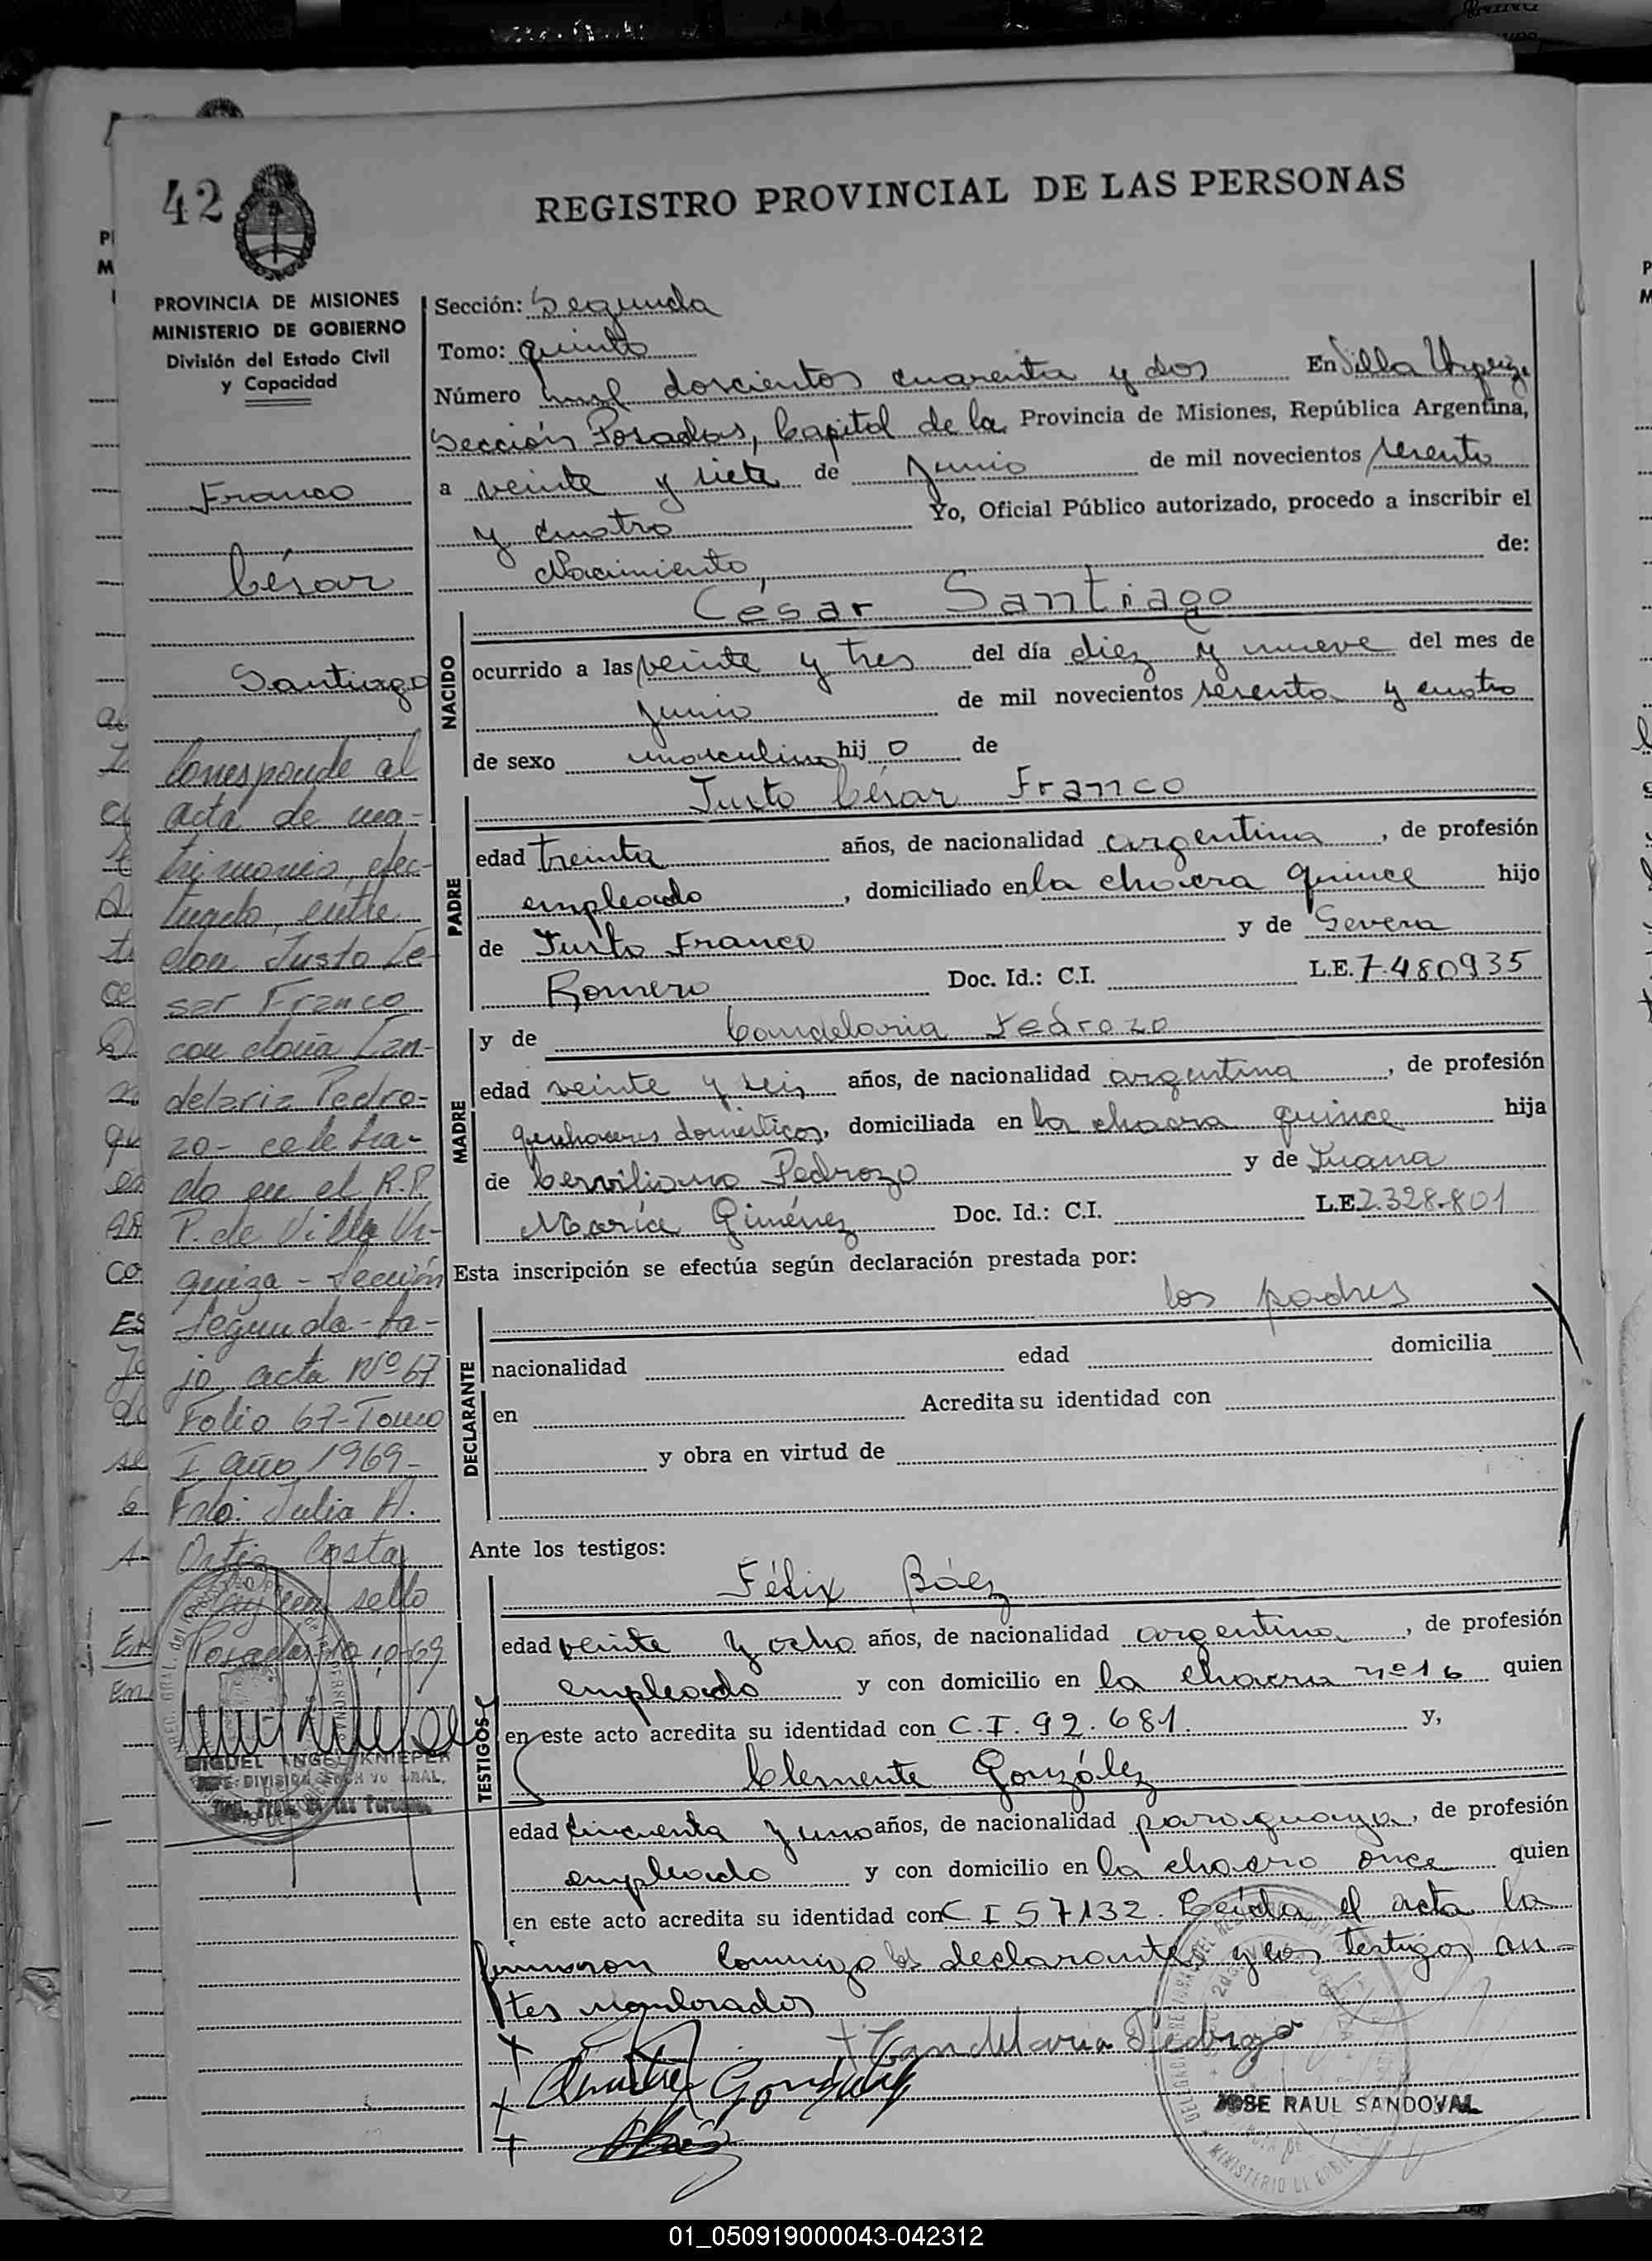 42
REGISTRO PROVINCIAL DE LAS PERSONAS
PROVINCIA DE MISIONES
MINISTERIO DE GOBIERNO
División del Estado Civil
y Capacidad
Franco
César
Santiago
Corresponde al
acta de ma-
trimonio, efec-
tuado, entre
don Justo Ce-
sar Franco
con doña Can-
delaria Pedro-
zo - celebra-
do en el R.P.
P. de Villa Ur-
quiza - Sección
Segunda - ba-
jo, acta Nº 67
Folio 67 - Tomo
I año 1969 -
Fdo: Julia A.
Ortiz Costa
Hay un sello
Posadas 10-69
MIGUEL ANGEL KNIEPER
JEFE DIVISION ARCHIVO GRAL.
Reg. Prov. de las Personas
Sección: Segunda
Tomo: quinto
Número mil doscientos cuarenta y dos En Villa Urquiza
Sección Posadas, Capital de la Provincia de Misiones, República Argentina,
a veinte y siete de Junio de mil novecientos sesenta
y cuatro Yo, Oficial Público autorizado, procedo a inscribir el
Nacimiento, de:
NACIDO
César Santiago
ocurrido a las veinte y tres del día diez y nueve del mes de
junio de mil novecientos sesenta y cuatro
de sexo masculino hij o de
PADRE
Justo César Franco
edad treinta años, de nacionalidad argentina, de profesión
empleado, domiciliado en la chacra quince hijo
de Justo Franco y de Severa
Romero Doc. Id.: C.I. L.E. 7.480935
MADRE
y de Candelaria Pedrozo
edad veinte y seis años, de nacionalidad argentina, de profesión
quehaceres domésticos, domiciliada en la chacra quince hija
de Cerviliano Pedrozo y de Juana
María Giménez Doc. Id.: C.I. L.E 2.328.801
Esta inscripción se efectúa según declaración prestada por:
DECLARANTE
los padres
nacionalidad edad domicilia
en Acredita su identidad con
y obra en virtud de
Ante los testigos:
TESTIGOS
Félix Báez
edad veinte y ocho años, de nacionalidad argentina, de profesión
empleado y con domicilio en la chacra nº 16 quien
en este acto acredita su identidad con C.I. 92.681. y,
Clemente González
edad cincuenta y uno años, de nacionalidad paraguaya, de profesión
empleado y con domicilio en la chacra once quien
en este acto acredita su identidad con C I 57132. Leída el acta la
firmaron conmigo los declarantes y los testigos an-
tes nombrados
+ Candelaria Pedrozo
González
JOSE RAUL SANDOVAL
01_050919000043-042312